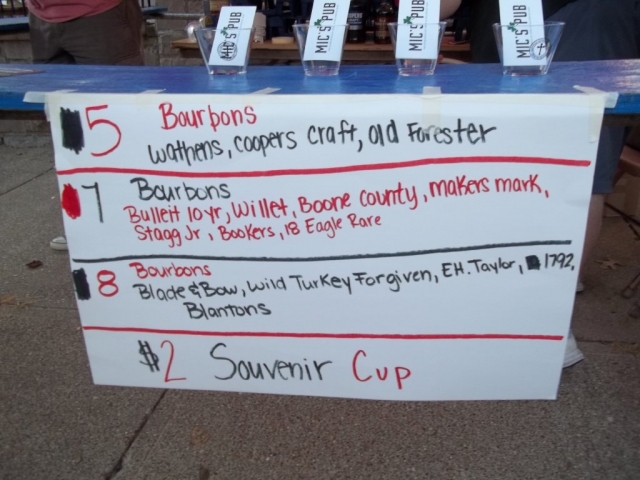 MIC'S PUB
MIC'S PUB
MIC'S PUB
MIC'S PUB
5 Bourbons
Wathens, coopers craft, old Forester
7 Bourbons
Bulleit 10yr, Willet, Boone county, makers mark,
Stagg Jr, Bookers, 18 Eagle Rare
8 Bourbons
Blade & Bow, Wild Turkey Forgiven, EH. Taylor, 1792,
Blantons
$2 Souvenir Cup